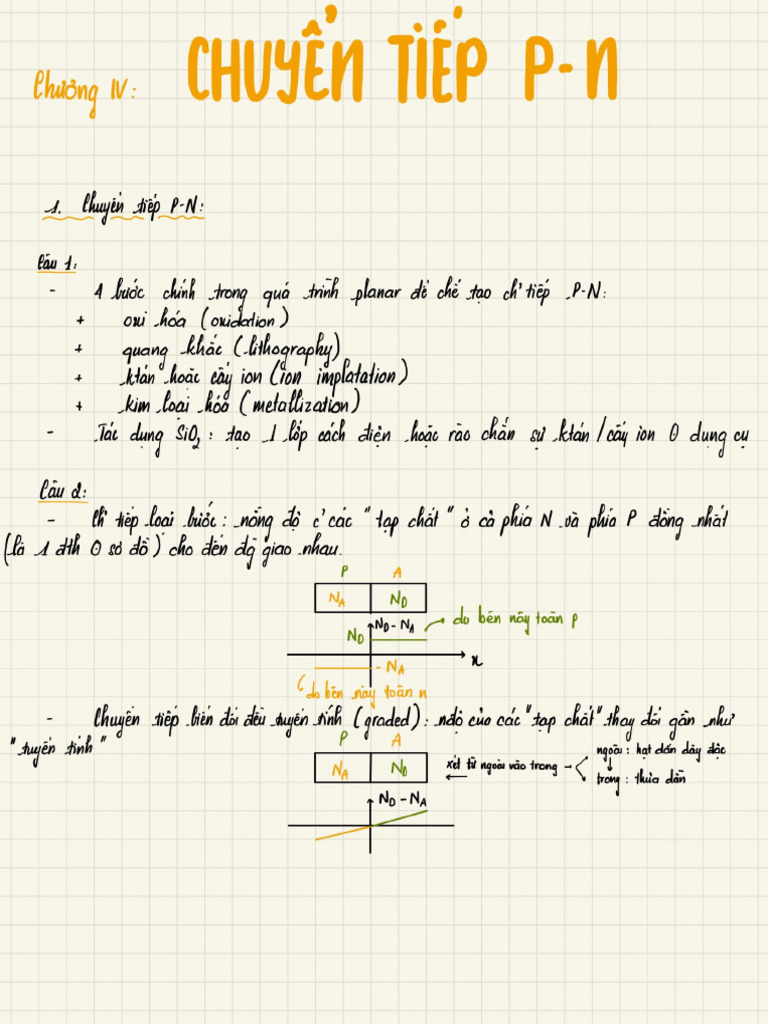 Chương IV: CHUYỂN TIẾP P-N
1. Chuyển tiếp P-N:
Câu 1:
- 4 bước chính trong quá trình planar để chế tạo ch' tiếp P-N:
+ oxi hóa (oxidation)
+ quang khắc (lithography)
+ ktán hoặc cấy ion (ion implatation)
+ kim loại hóa (metallization)
- Tác dụng SiO₂: tạo 1 lớp cách điện hoặc rào chắn sự ktán/cấy ion ở dụng cụ
Câu 2:
- Ch' tiếp loại bước: nồng độ c' các "tạp chất" ở cả phía N và phía P đồng nhất
(là 1 đth ở sơ đồ) cho đến đg giao nhau.
P A
N_A N_D
N_D - N_A
N_D do bên này toàn p
x
- N_A
do bên này toàn n
- Chuyển tiếp biến đổi đều tuyến tính (graded): nđộ của các "tạp chất" thay đổi gần như
"tuyến tính"
P A
N_A N_D
xét từ ngoài vào trong
ngoài: hạt dẫn dày đặc
trong: thưa dần
N_D - N_A